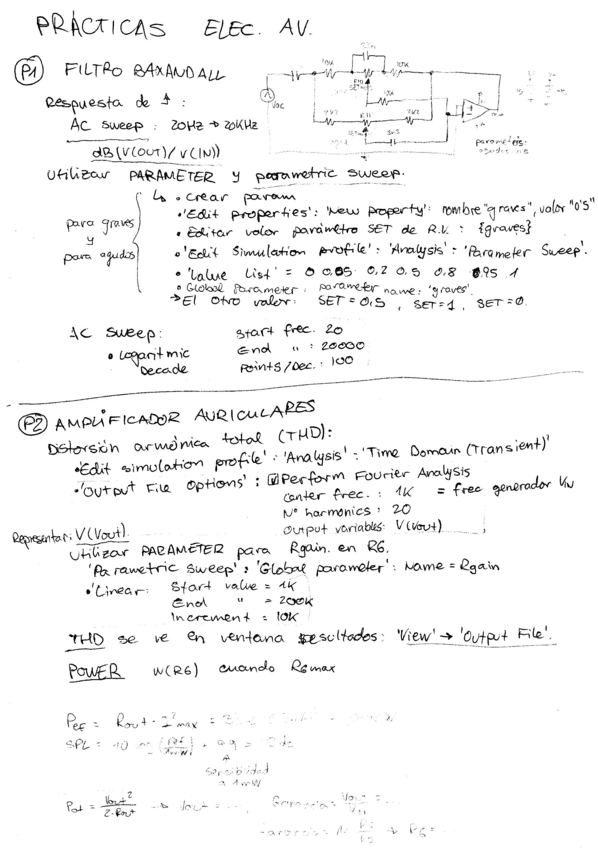 PRÁCTICAS ELEC. AV.
P1 FILTRO BAXANDALL
Respuesta de f :
AC Sweep : 20Hz → 20KHz
dB(V(OUT)/V(IN))
Utilizar PARAMETER y parametric sweep.
para graves y para agudos
• crear param
• 'Edit properties': 'New property': nombre "graves", valor "0'5"
• Editar valor parámetro SET de R.V. : {graves}
• 'Edit Simulation profile': 'Analysis': 'Parameter Sweep'.
• 'Value List' = 0 0,05 0,2 0,5 0,8 0,95 1
• Global Parameter : parameter name: 'graves'.
→ El otro valor: SET = 0,5 , SET = 1 , SET = 0.
AC Sweep: Start frec. 20
• Logaritmic End " : 20000
Decade Points/Dec. : 100
P2 AMPLIFICADOR AURICULARES
Distorsión armónica total (THD):
• Edit simulation profile' : 'Analysis' : 'Time Domain (Transient)'
• 'Output File Options' : ☑ Perform Fourier Analysis
Center frec. : 1K = frec generador VIN
Nº harmonics : 20
Output variables: V(Vout)
Representar: V(Vout).
Utilizar PARAMETER para Rgain. en R6.
'Parametric sweep' : 'Global parameter' : Name = Rgain
• 'Linear: Start value = 1K
End " = 200K
Increment = 10K
THD se ve en ventana resultados: 'View' → 'Output File'.
POWER W(R6) cuando R6max
Pef = Rout · I²max =
SPL =
sensibilidad
a 1mW
Pot = Vout² / 2·Rout → Vout = ... Ganancia = Vout / Vin = ...
→ R6 = ...